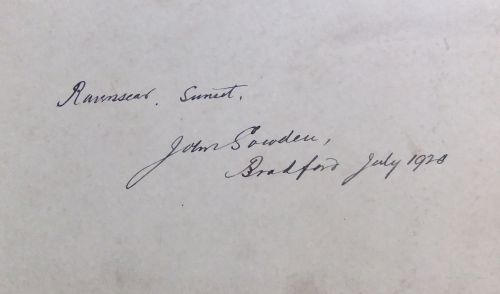 Ravnscar. Sunset.
John Sowden,
Bradford July 1920